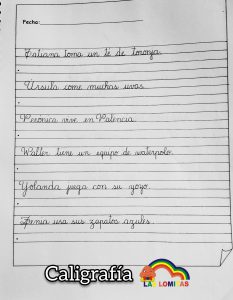 Fecha:
Tatiana toma un té de toronja.
Úrsula come muchas uvas.
Verónica vive en Valencia.
Walter tiene un equipo de waterpolo.
Yolanda juega con su yoyo.
Zenia usa sus zapatos azules.
Caligrafía
LAS LOMITAS